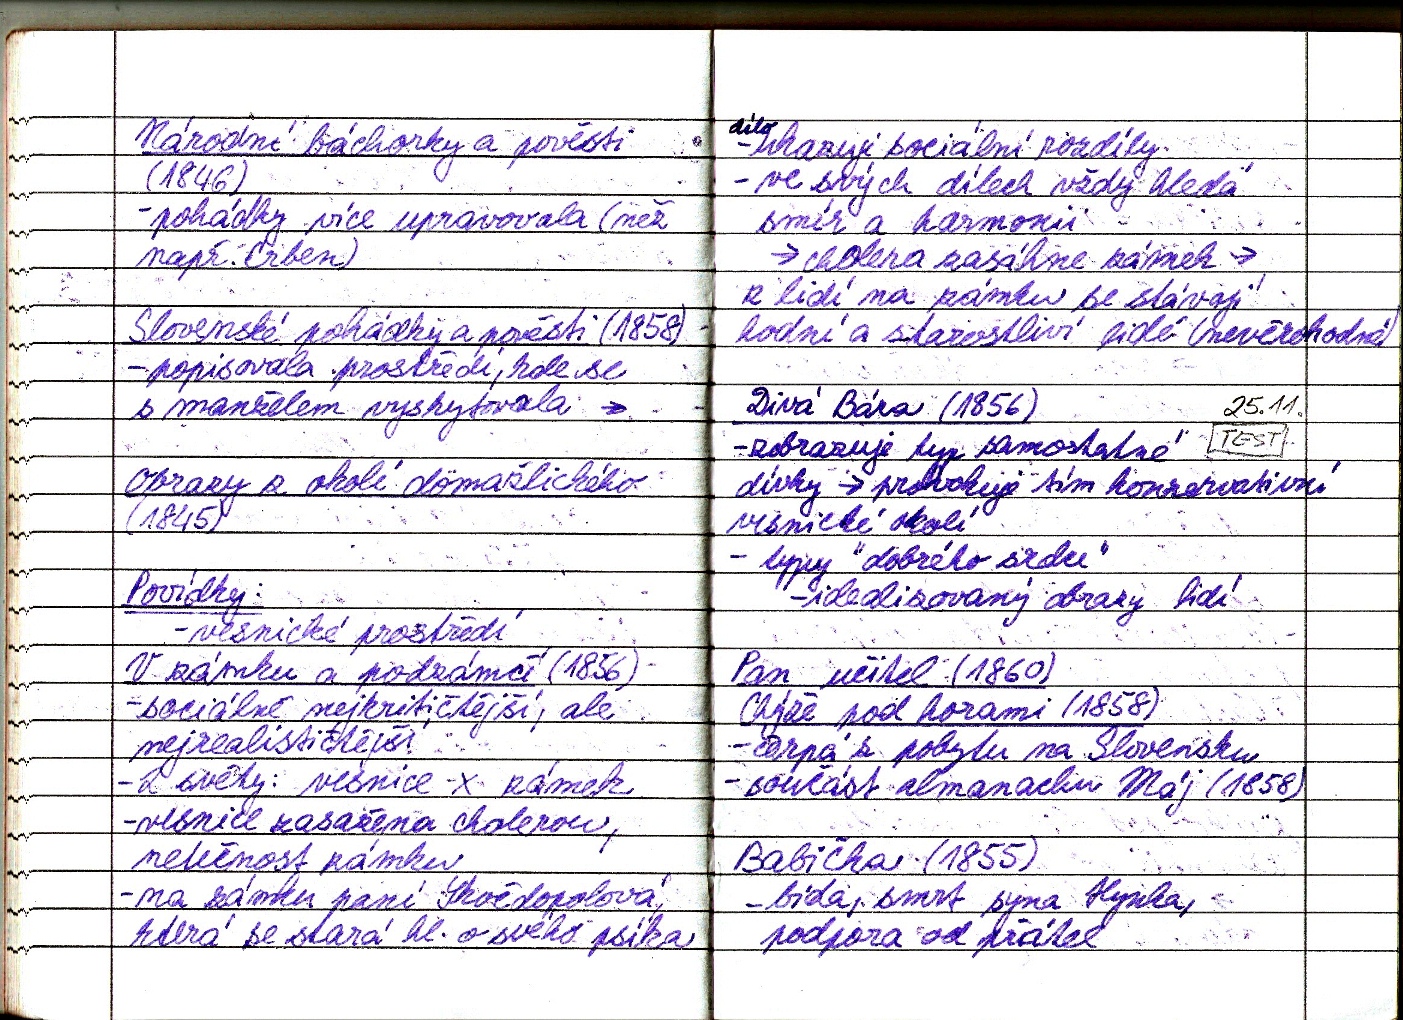 Národní báchorky a pověsti
(1846)
- pohádky více upravovala (než
např. Erben)
Slovenské pohádky a pověsti (1858)
- popisovala prostředí, kde se
s manželem vyskytovala →
Obrazy z okolí domažlického
(1845)
Povídky:
- vesnické prostředí
V zámku a podzámčí (1856)
- sociálně nejkritičtější, ale
nejrealističtější
- 2 světy: vesnice x zámek
- vesnice zasažena cholerou,
netečnost zámku
- na zámku paní Skočdopolová,
která se stará hl. o svého psíka
dílo
- ukazuje sociální rozdíly
- ve svých dílech vždy hledá
smír a harmonii
→ cholera zasáhne zámek →
z lidí na zámku se stávají
hodní a starostliví lidé (nevěrohodné)
Divá Bára (1856)
25.11.
TEST
- zobrazuje typ samostatné
dívky → provokuje tím konzervativní
vesnické okolí
- typy "dobrého srdce"
- idealizovaný obrazy lidí
Pan učitel (1860)
Chýže pod horami (1858)
- čerpá z pobytu na Slovensku
- součást almanachu Máj (1858)
Babička (1855)
- bída, smrt syna Hynka,
podpora od přátel